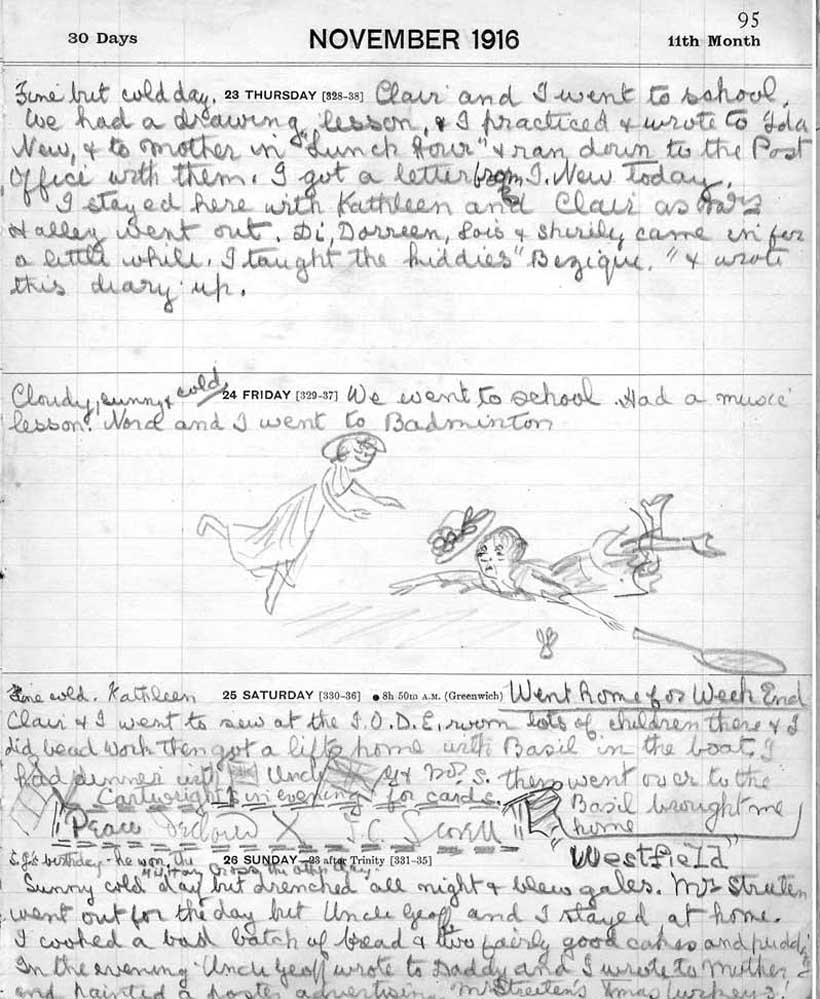 95
30 Days NOVEMBER 1916 11th Month
Fine but cold day. 23 THURSDAY [328-38] Clair and I went to school.
We had a drawing lesson, & I practiced & wrote to Ida
New, & to mother in "Lunch Hour" & ran down to the Post
Office with them. I got a letter from I. New today.
I stayed here with Kathleen and Clair as Mrs
Halley went out. Di, Dorreen, Lois & Shirily came in for
a little while. I taught the kiddies "Bezique." & wrote
this diary up.
Cloudy, sunny & cold 24 FRIDAY [329-37] We went to school. Had a music
lesson. Nora and I went to Badminton
Fine cold. Kathleen 25 SATURDAY [330-36] ● 8h 50m A.M. (Greenwich) Went home for Week End
Clair & I went to sew at the I.O.D.E. room lots of children there & I
did bead work then got a lift home with Basil in the boat. I
had dinner with Uncle G & Mrs. S. then went over to the
Cartwright's in evening for cards. Basil brought me
home
"Peace declared X J.C. Scovell"
birthday - he won the 26 SUNDAY—23 after Trinity [331-35] "Westfield"
Military Cross the other day.
Sunny cold day but drenched all night & blew gales. Mrs Streeten
went out for the day but Uncle Geoff and I stayed at home.
I cooked a bad batch of bread & two fairly good cakes and pudd
In the evening Uncle Geoff wrote to Daddy and I wrote to Mother
and painted a poster advertising Mrs Streeten's Xmas turkeys!